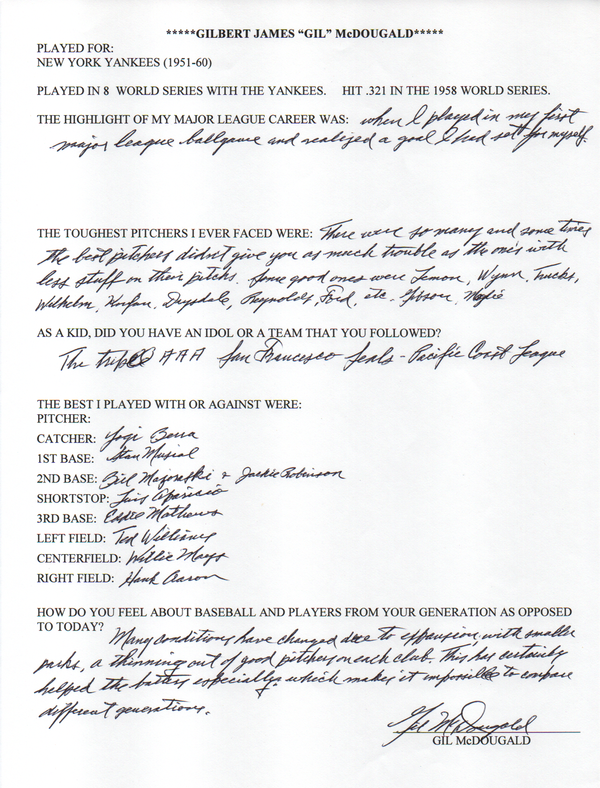 *****GILBERT JAMES “GIL” McDOUGALD*****
PLAYED FOR:
NEW YORK YANKEES (1951-60)
PLAYED IN 8 WORLD SERIES WITH THE YANKEES. HIT .321 IN THE 1958 WORLD SERIES.
THE HIGHLIGHT OF MY MAJOR LEAGUE CAREER WAS: when I played in my first
major league ballgame and realized a goal I had set for myself.
THE TOUGHEST PITCHERS I EVER FACED WERE: There were so many and some times
the best pitchers didn't give you as much trouble as the ones with
less stuff on their pitchs. Some good ones were Lemon, Wynn, Trucks,
Wilhelm, Koufax, Drysdale, Reynolds, Ford, etc. Gibson,
AS A KID, DID YOU HAVE AN IDOL OR A TEAM THAT YOU FOLLOWED?
The triple AAA San Francesco Seals - Pacific Coast League
THE BEST I PLAYED WITH OR AGAINST WERE:
PITCHER:
CATCHER: Yogi Berra
1ST BASE: Stan Musial
2ND BASE: Bill Mazoroski & Jackie Robinson
SHORTSTOP: Luis Aparicio
3RD BASE: Eddie Mathews
LEFT FIELD: Ted Williams
CENTERFIELD: Willie Mays
RIGHT FIELD: Hank Aaron
HOW DO YOU FEEL ABOUT BASEBALL AND PLAYERS FROM YOUR GENERATION AS OPPOSED
TO TODAY?
Many conditions have changed due to expansion, with smaller
parks, a thinning out of good pitchers on each club. This has certainly
helped the batters especially which makes it impossible to compare
different generations.
Gil McDougald
GIL McDOUGALD